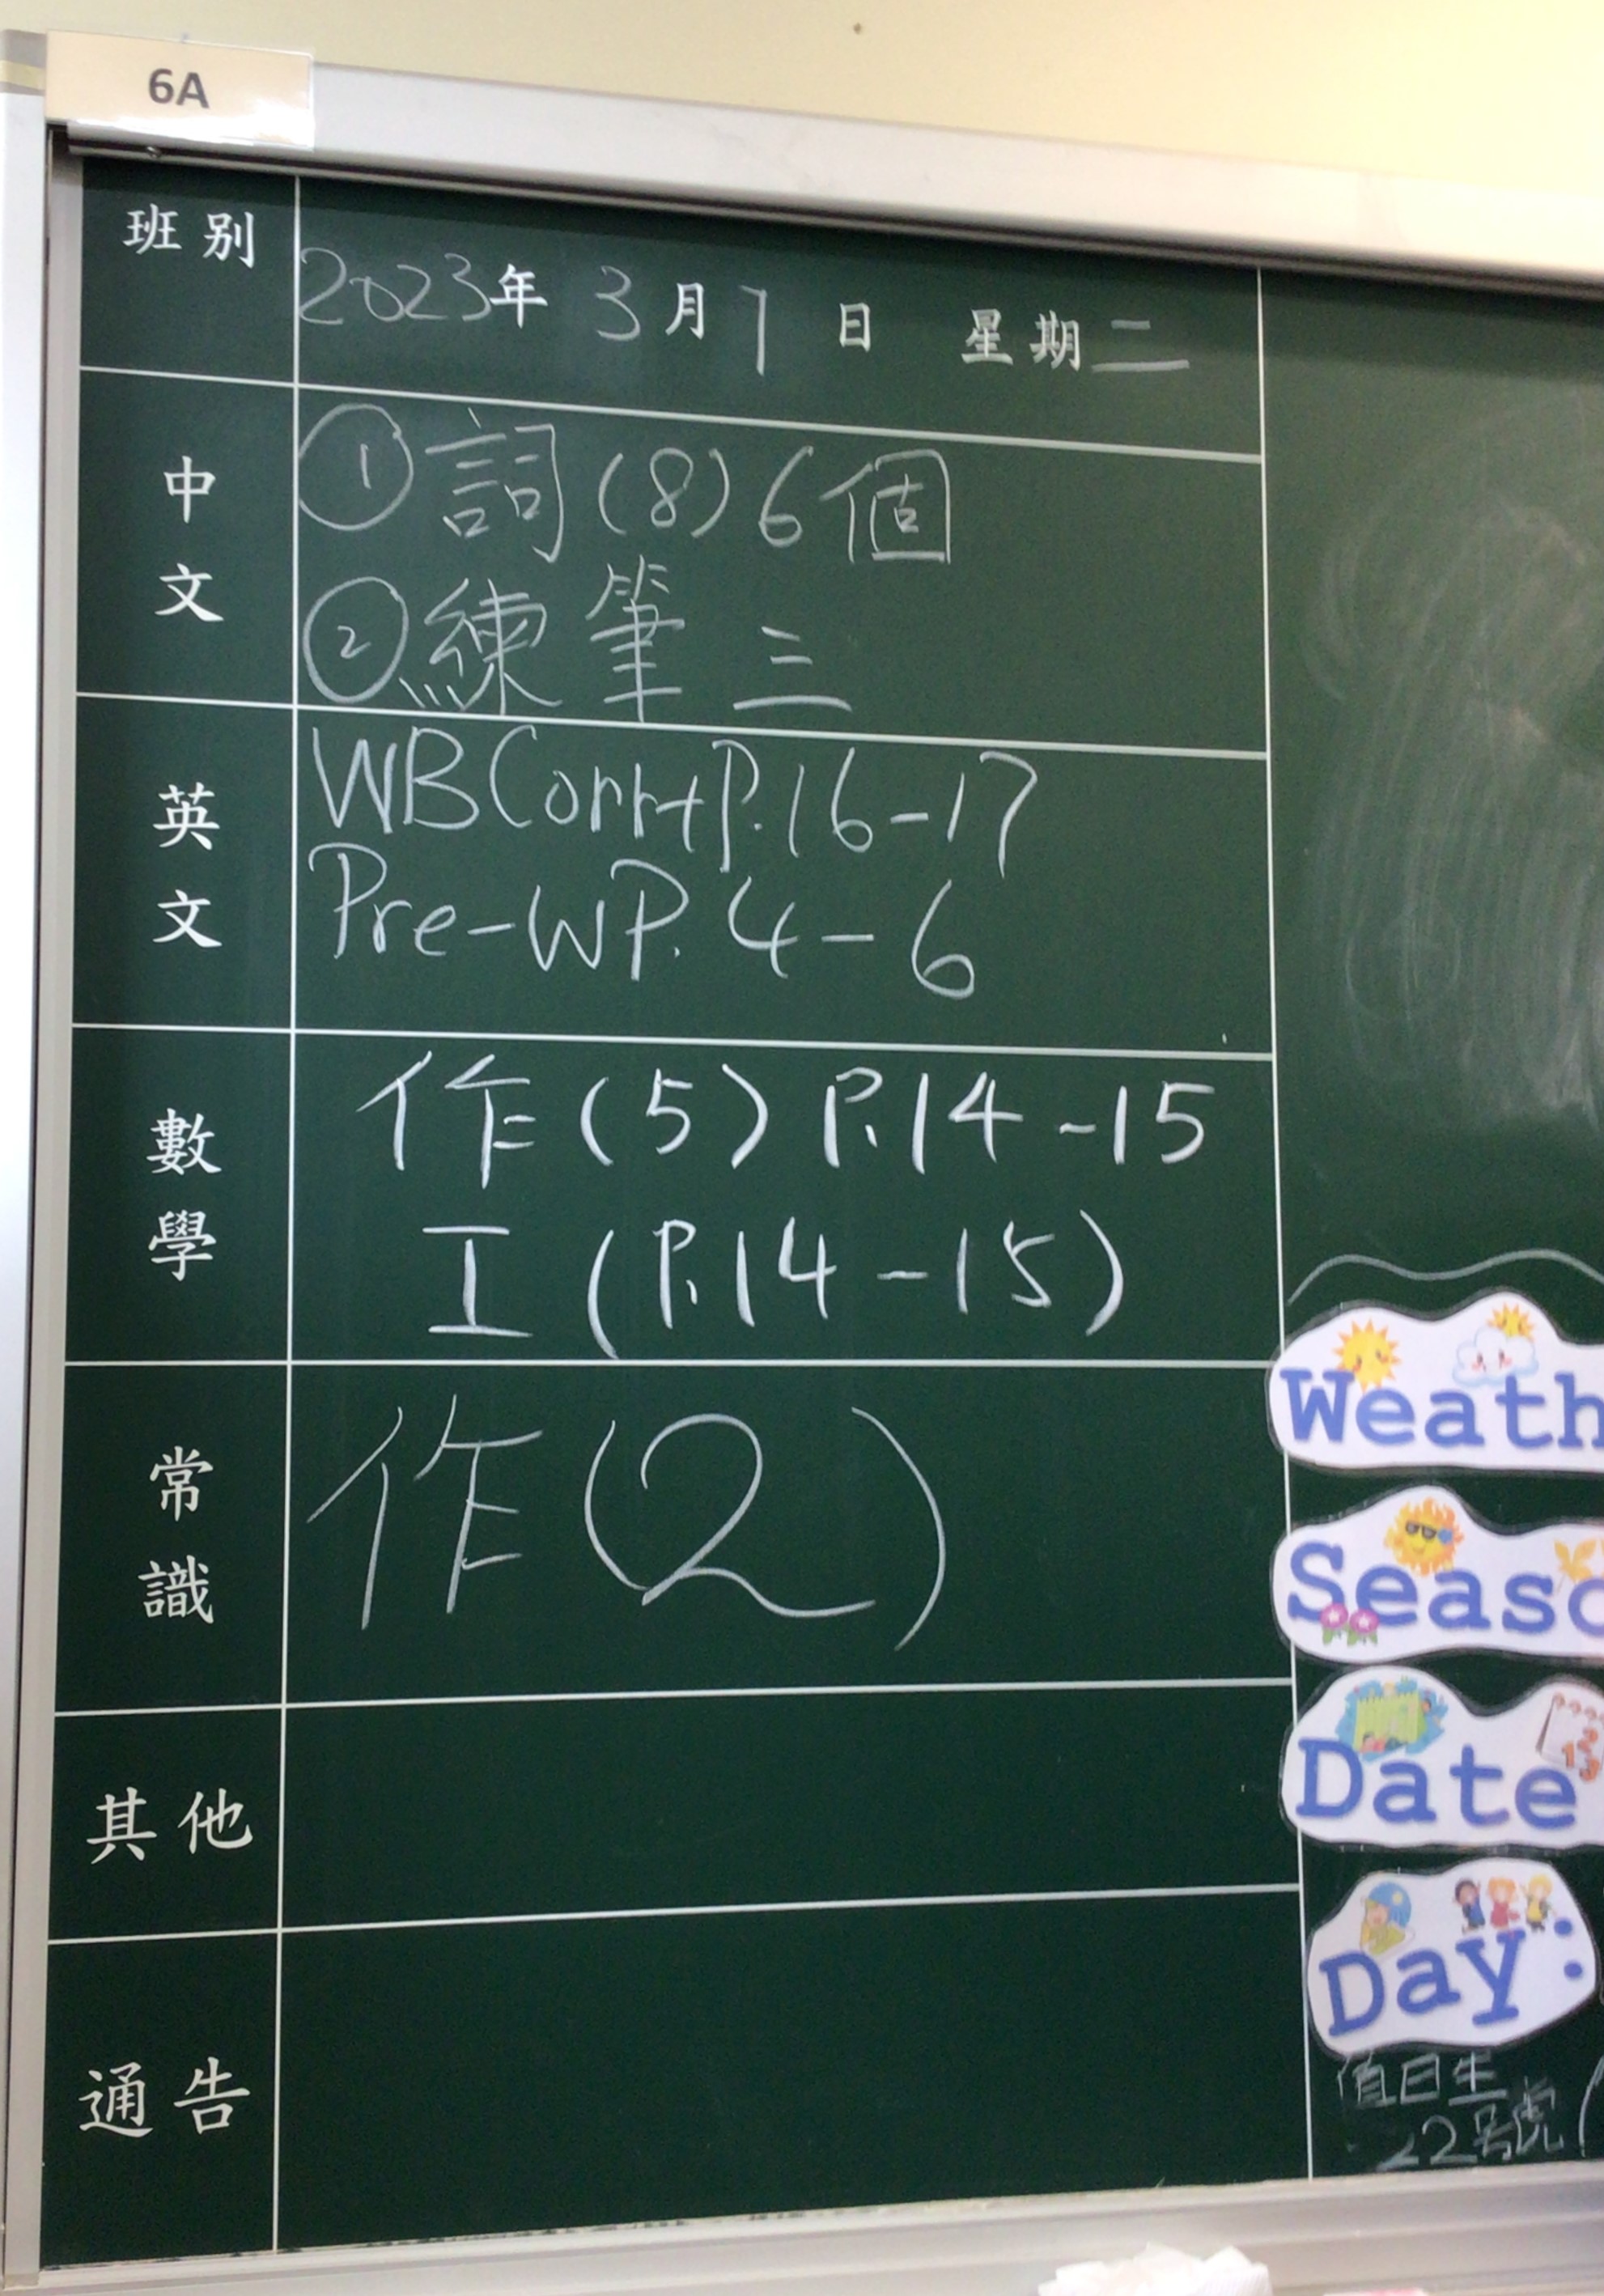 6A
班別
2023年 3月7日 星期二
中文
①詞(8)6個
②練筆三
英文
WB Corr+P.16-17
Pre-WP.4-6
數學
作(5)P.14-15
工(P.14-15)
常識
作(2)
其他
通告
Weath
Seaso
Date
Day:
值日生
22號(